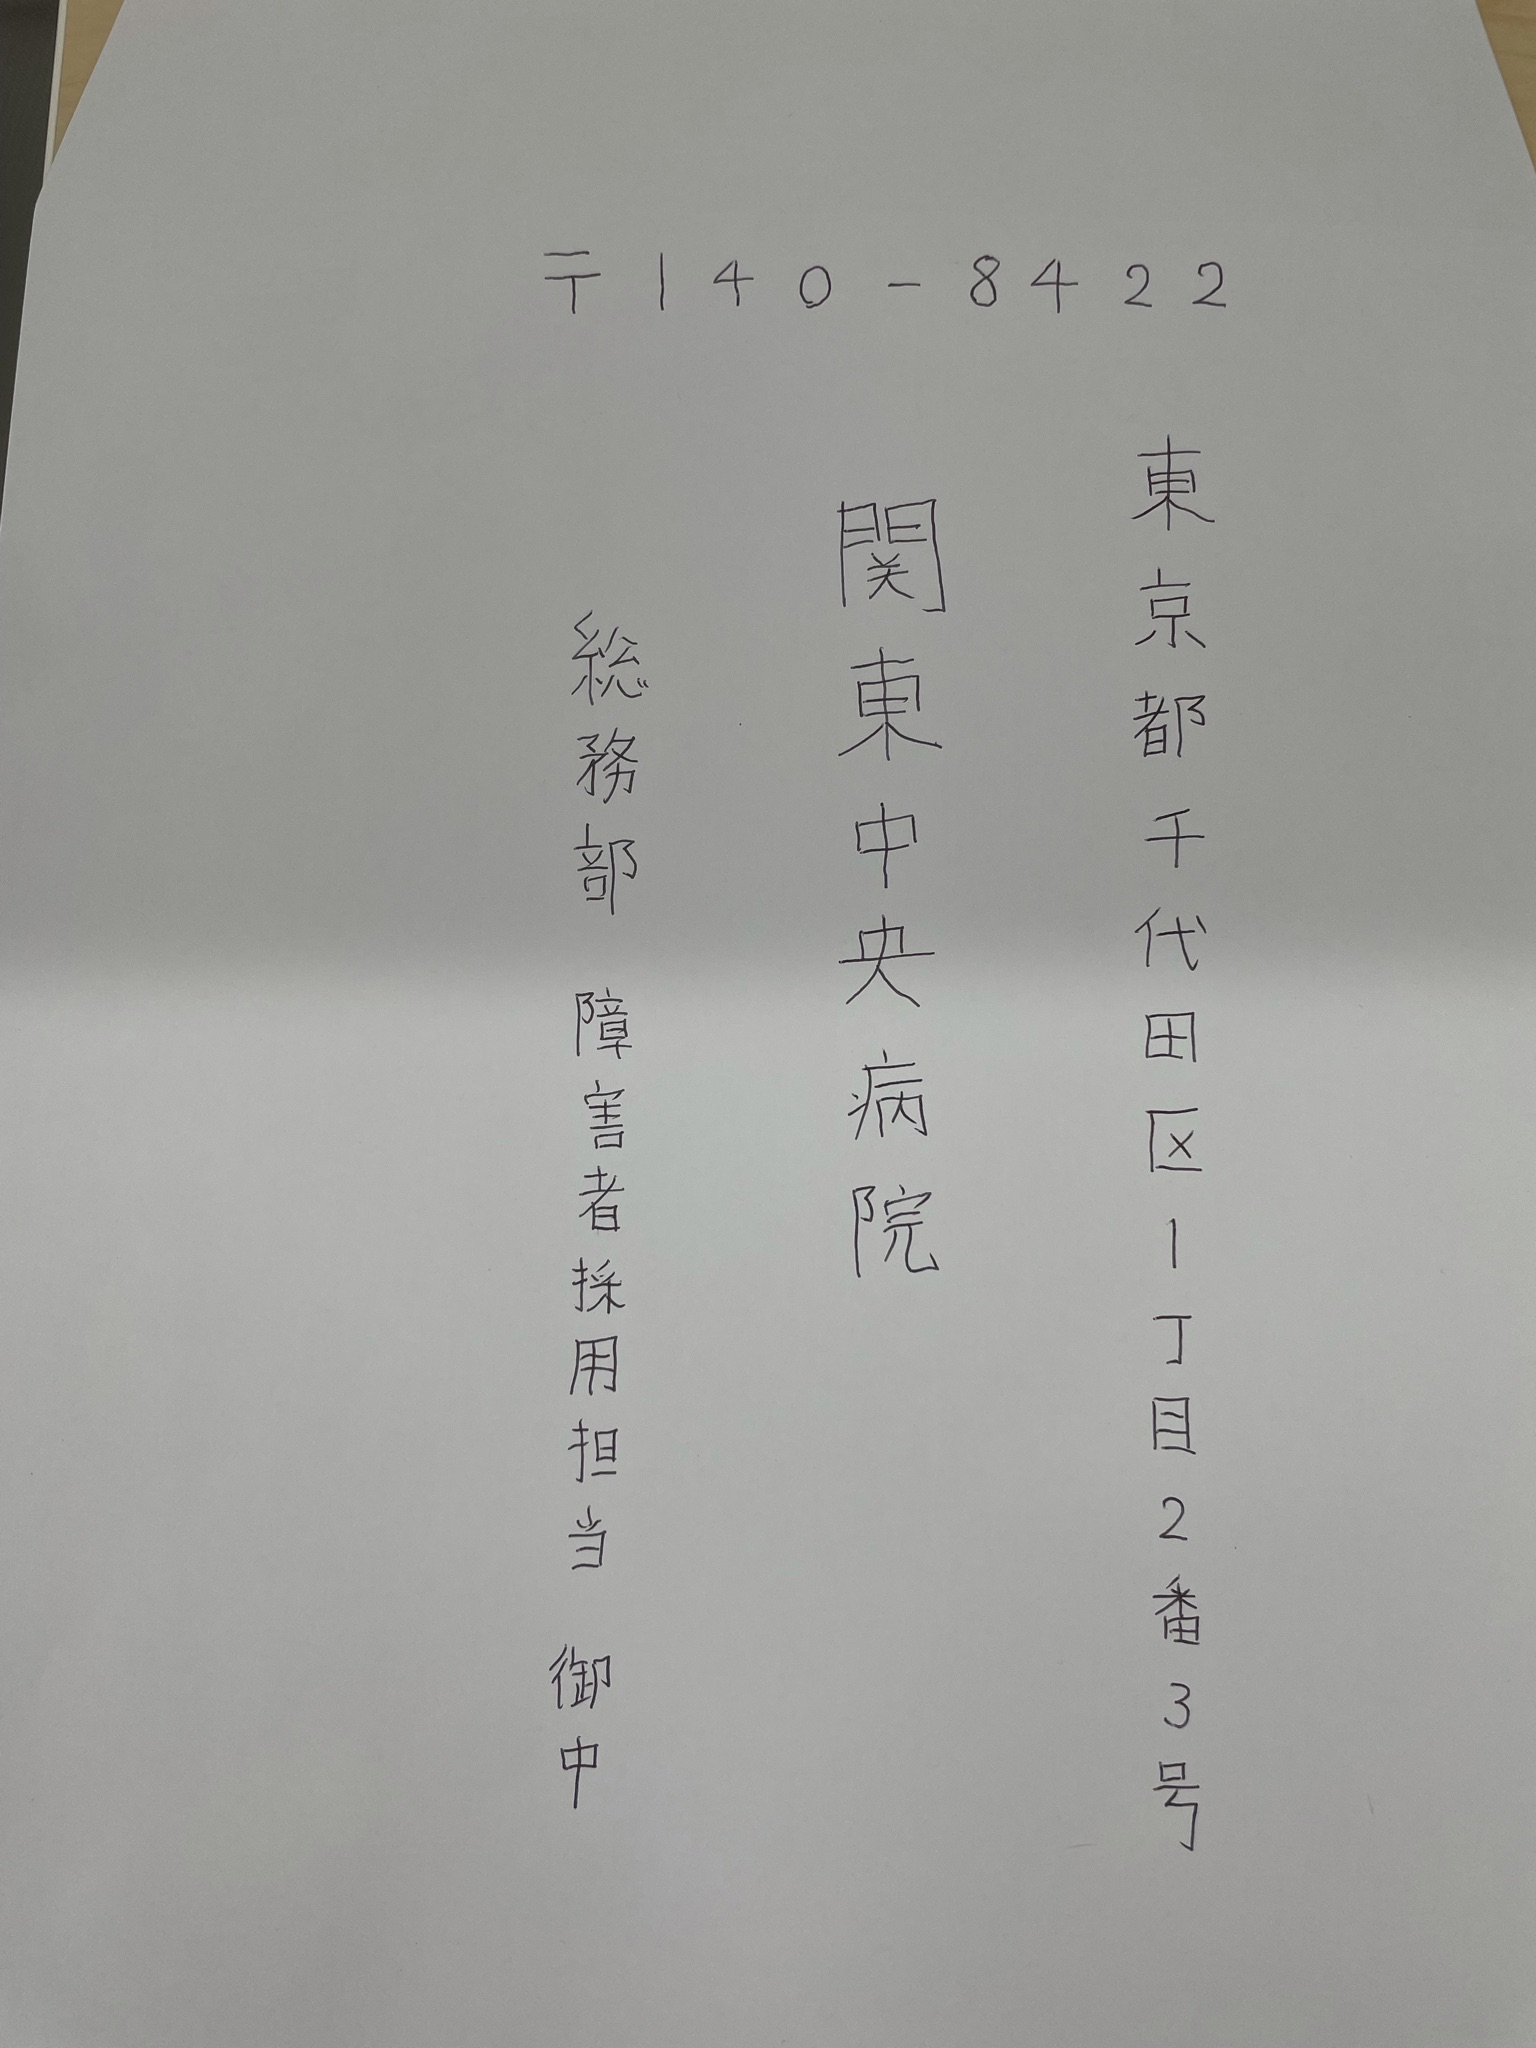 〒140-8422
東京都千代田区1丁目2番3号
関東中央病院
総務部 障害者採用担当 御中